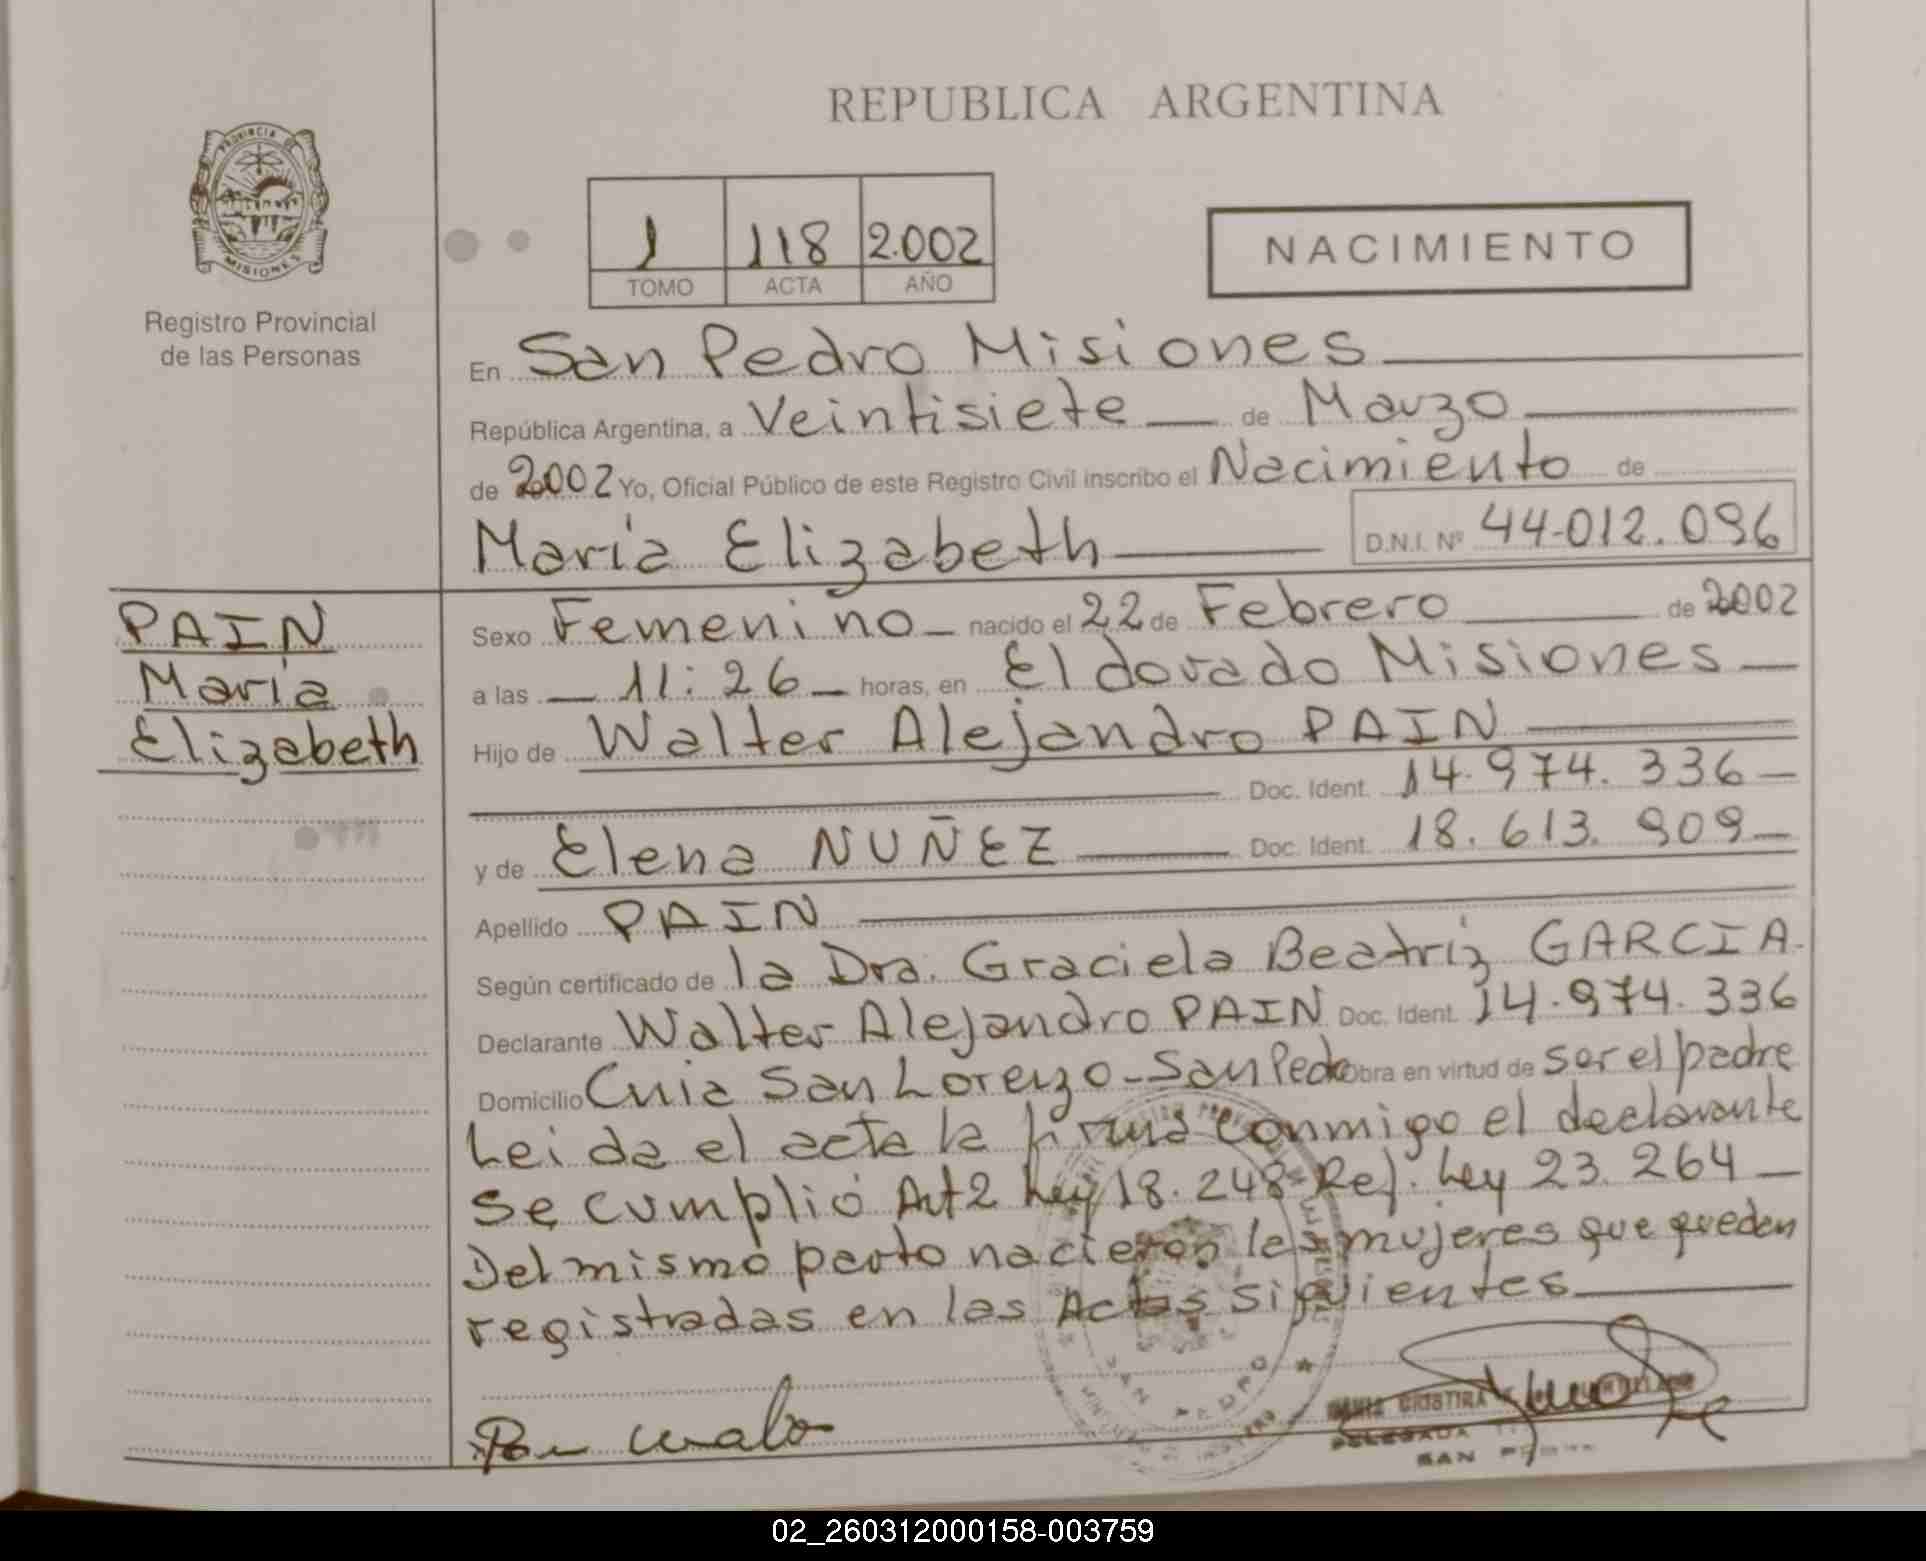 REPUBLICA ARGENTINA
PROVINCIA DE
MISIONES
Registro Provincial
de las Personas
1 118 2.002
TOMO ACTA AÑO
NACIMIENTO
En San Pedro Misiones
República Argentina, a Veintisiete de Marzo
de 2002 Yo, Oficial Público de este Registro Civil inscribo el Nacimiento de
María Elizabeth D.N.I. Nº 44.012.096
PAIN
María
Elizabeth
Sexo Femenino nacido el 22 de Febrero de 2002
a las 11:26 horas, en Eldorado Misiones
Hijo de Walter Alejandro PAIN
Doc. Ident. 14.974.336
y de Elena NUÑEZ Doc. Ident. 18.613.909
Apellido PAIN
Según certificado de la Dra. Graciela Beatriz GARCIA
Declarante Walter Alejandro PAIN Doc. Ident. 14.974.336
Domicilio San Lorenzo - San Pedro Obra en virtud de ser el padre
Leida el acta la firma conmigo el declarante
Se cumplió Art 2 Ley 18.248 Ref. Ley 23.264
Del mismo parto nacieron las mujeres que quedan
registradas en las Actas siguientes
SAN PEDRO
SAN
02_260312000158-003759